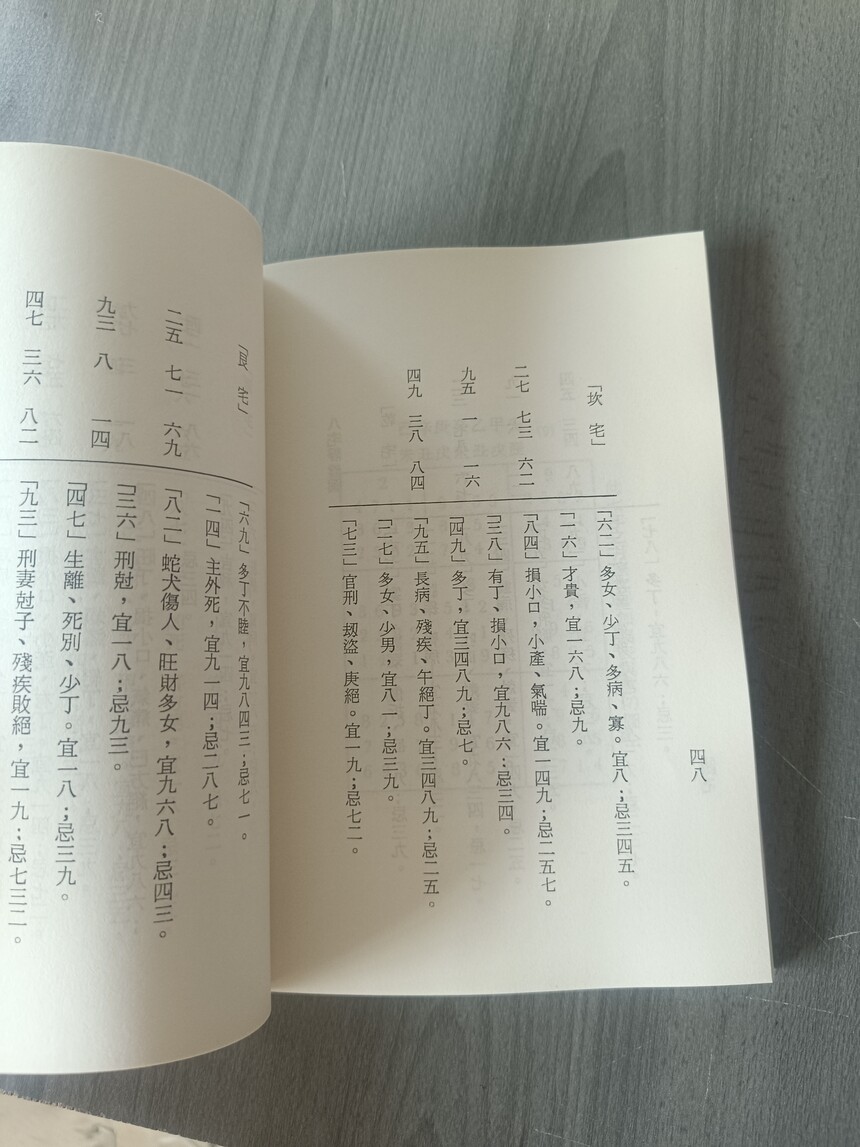 四八
「坎 宅」
二七 七三 六二
九五 一 一六
四九 三八 八四
「六二」多女、少丁、多病、寡。宜八;忌三四五。
「一六」才貴,宜一六八;忌九。
「八四」損小口,小產、氣喘。宜一四九;忌二五七。
「三八」有丁、損小口,宜九八六;忌三四。
「四九」多丁,宜三四八九;忌七。
「九五」長病、殘疾、午絕丁。宜三四八九;忌二五。
「二七」多女、少男,宜八一;忌三九。
「七三」官刑、刼盜、庚絕。宜一九;忌七二。
「艮 宅」
二五 七一 六九
九三 八 一四
四七 三六 八二
「六九」多丁不睦,宜九八四三;忌七一。
「一四」主外死,宜九一四;忌二八七。
「八二」蛇犬傷人、旺財多女,宜九六八;忌四三。
「三六」刑尅,宜一八;忌九三。
「四七」生離、死別、少丁。宜一八;忌三九。
「九三」刑妻尅子、殘疾敗絕,宜一九;忌七三二。